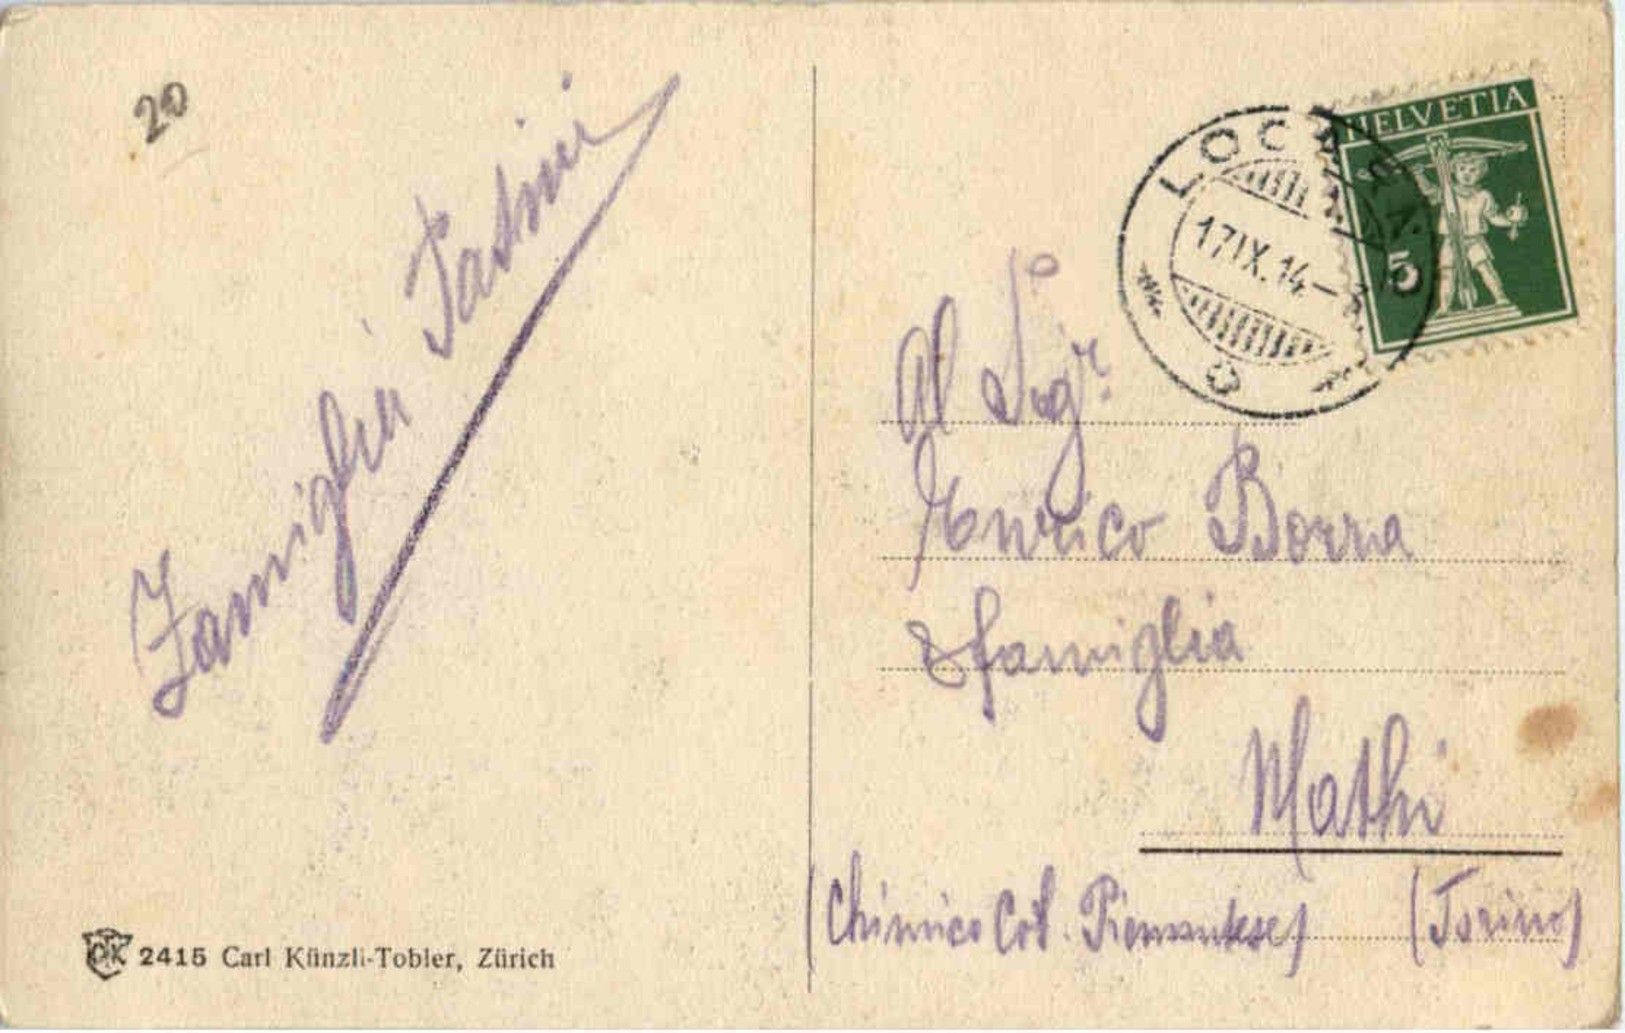 20
Famiglia
HELVETIA
5
LOCARNO
17.IX.14
Al Sigr.
Enrico Borra
& famiglia
Mathi
(Chimico Cot. Piemontese) (Torino)
CTK 2415 Carl Künzli-Tobler, Zürich